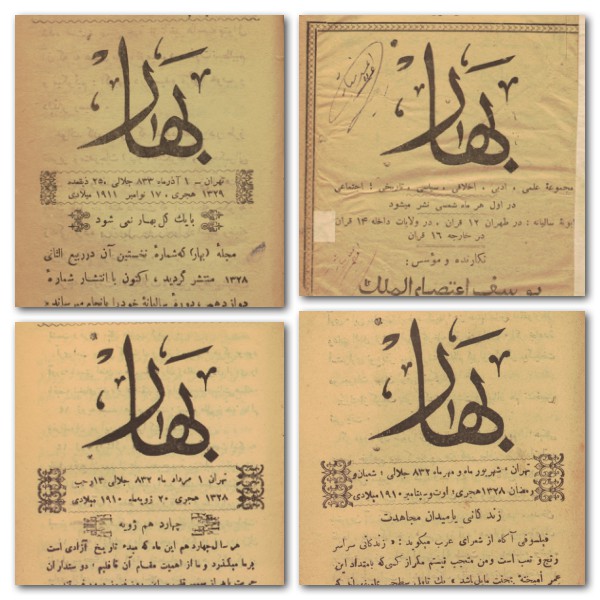 بهار
تهران ـ ۱ آذرماه ۸۳۳ جلالی، ۲۵ ذیقعده
۱۳۲۹ هجری، ۱۷ نوامبر ۱۹۱۱ میلادی
بایك گل بهار نمی شود
مجلهٔ (بهار) که شمارهٔ نخستین آن در ربیع الثانی
۱۳۲۸ منتشر گردید، اکنون با انتشار شمارهٔ
دوازدهم، دورهٔ سالیانهٔ خود را بانجام میرساند
بهار
مجموعهٔ علمی، ادبی، اخلاقی، سیاسی، تاریخی، اجتماعی
در اول هر ماه شمسی نشر میشود
سالیانه : در طهران ۱۲ قران ، در ولایات داخله ۱۴ قران
در خارجه ۱۶ قران
نگارنده و مؤسس :
یوسف اعتصام الملك
بهار
تهران ۱ مرداد ماه ۸۳۲ جلالی ۱۳ رجب
۱۳۲۸ هجری ۲۰ ژویه ماه ۱۹۱۰ میلادی
چهارد هم ژویه
هر سال چهارد هم این ماه که عید تاریخ آزادی است
برما میگذرد و ما از اهمیت مقام آن غافلیم ، دوستداران
بهار
تهران ، شهریور ماه و مهر ماه ۸۳۲ جلالی ، شعبان و
رمضان ۱۳۲۸ هجری ، اوت و سپتامبر ۱۹۱۰ میلادی
زندگانی یا میدان مجاهدت
فیلسوفی آگاه از شعرای عرب میگوید : « زندگانی سراسر
رنج و تعب است و من متعجب نیستم مگر از کسی که بامتداد این